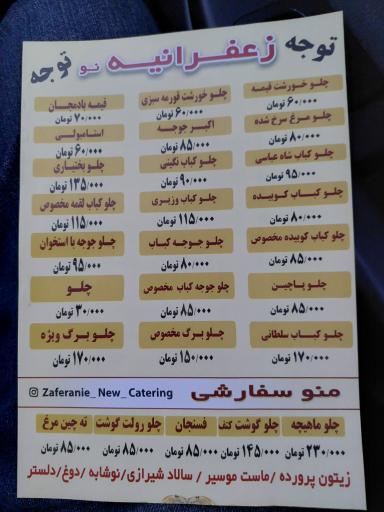 توجه زعفرانیه نو توجه
چلو خورشت قیمه
۶۰/۰۰۰ تومان
چلو مرغ سرخ شده
۸۰/۰۰۰ تومان
چلو کباب شاه عباسی
۹۵/۰۰۰ تومان
چلو کباب کوبیده
۸۰/۰۰۰ تومان
چلو کباب کوبیده مخصوص
۸۵/۰۰۰ تومان
چلو پاچین
۸۵/۰۰۰ تومان
چلو کباب سلطانی
۱۷۰/۰۰۰ تومان
چلو خورشت قورمه سبزی
۶۰/۰۰۰ تومان
اکبر جوجه
۸۵/۰۰۰ تومان
چلو کباب نگینی
۹۰/۰۰۰ تومان
چلو کباب وزیری
۱۱۵/۰۰۰ تومان
چلو جوجه کباب
۸۰/۰۰۰ تومان
چلو جوجه کباب مخصوص
۸۵/۰۰۰ تومان
چلو برگ مخصوص
۱۵۰/۰۰۰ تومان
قیمه بادمجان
۷۰/۰۰۰ تومان
استامبولی
۶۰/۰۰۰ تومان
چلو بختیاری
۱۳۵/۰۰۰ تومان
چلو کباب لقمه مخصوص
۱۱۵/۰۰۰ تومان
چلو جوجه با استخوان
۹۵/۰۰۰ تومان
چلو
۳۰/۰۰۰ تومان
چلو برگ ویژه
۱۷۰/۰۰۰ تومان
منو سفارشی
Zaferanie_New_Catering
چلو ماهیچه
۲۳۰/۰۰۰ تومان
چلو گوشت کتف
۱۴۵/۰۰۰ تومان
فسنجان
۸۵/۰۰۰ تومان
چلو رولت گوشت
۸۵/۰۰۰ تومان
ته چین مرغ
۸۵/۰۰۰ تومان
زیتون پرورده / ماست موسیر / سالاد شیرازی/نوشابه /دوغ/دلستر